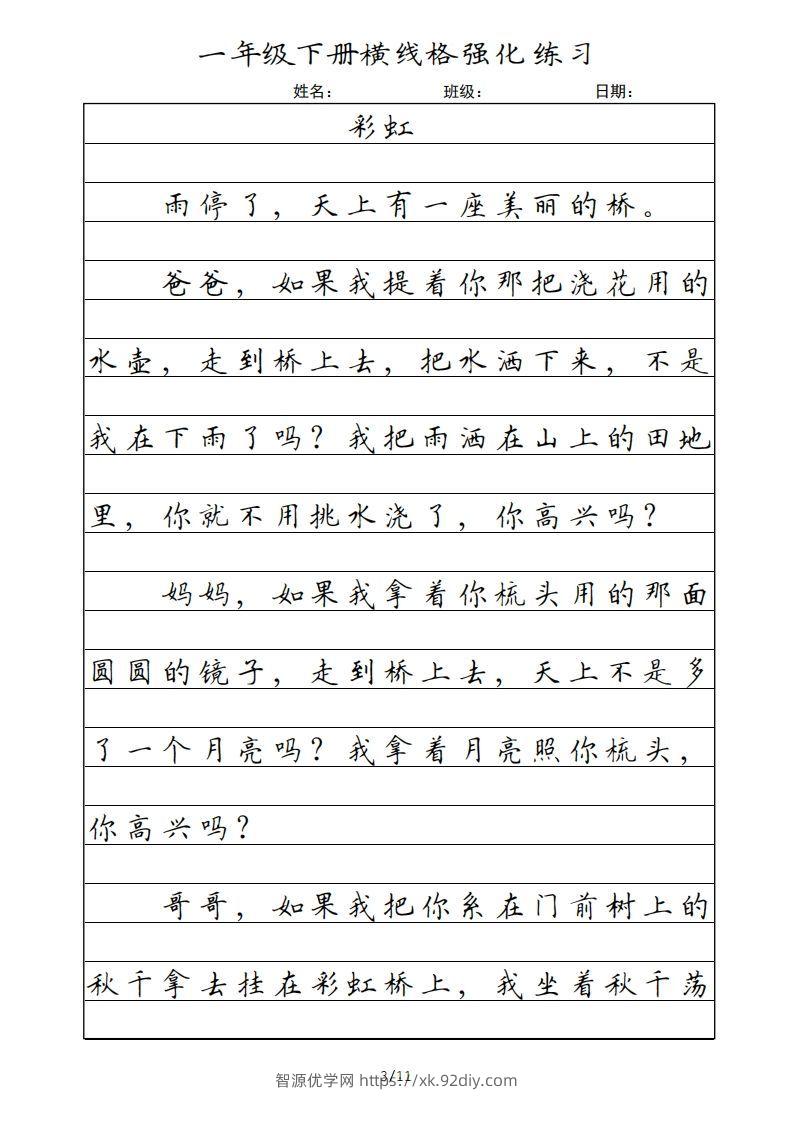 一年级下册横线格强化练习
姓名： 班级： 日期：
彩虹
雨停了，天上有一座美丽的桥。
爸爸，如果我提着你那把浇花用的
水壶，走到桥上去，把水洒下来，不是
我在下雨了吗？我把雨洒在山上的田地
里，你就不用挑水浇了，你高兴吗？
妈妈，如果我拿着你梳头用的那面
圆圆的镜子，走到桥上去，天上不是多
了一个月亮吗？我拿着月亮照你梳头，
你高兴吗？
哥哥，如果我把你系在门前树上的
秋千拿去挂在彩虹桥上，我坐着秋千荡
3/11
智源优学网 https://xk.92diy.com